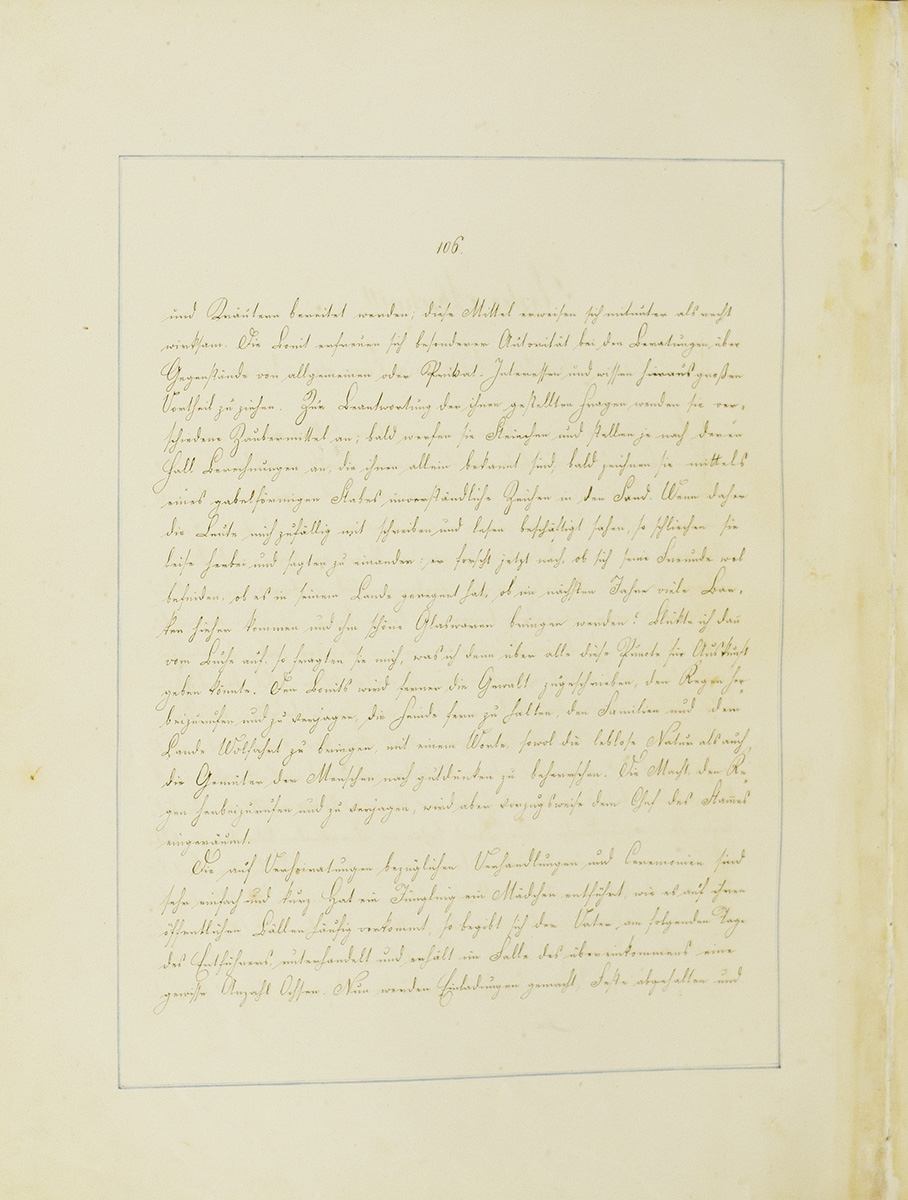 106.
und Kräutern bereitet werden; diese Mittel erweisen sich mitunter als recht
wirksam. Die Bonit erfreuen sich besonderer Autorität bei den Beratungen über
Gegenstände von allgemeinen oder Privat-Interessen und wissen hieraus großen
Vortheil zu ziehen. Zur Beantwortung der ihnen gestellten Fragen wenden sie ver-
schiedene Zaubermittel an; bald werfen sie Steinchen und stellen je nach deren
Fall Berechnungen an, die ihnen allein bekannt sind, bald zeichnen sie mittels
eines gabelförmigen Stabes unverständliche Zeichen in den Sand. Wenn daher
die Leute mich zufällig mit schreiben und lesen beschäftigt sahen, so schlichen sie
leise herbei und sagten zu einander: er forscht jetzt nach, ob sich seine Freunde wol
befinden, ob es in seinem Lande geregnet hat, ob im nächsten Jahre viele Bar-
ken hieher kommen und ihm schöne Glaswaren bringen werden? Blikte ich dann
vom Buche auf, so fragten sie mich, was ich denn über alle diese Puncte für Auskunft
geben könnte. Den Bonits wird ferner die Gewalt zugeschrieben, den Regen her-
beizurufen und zu verjagen, die Feinde fern zu halten, den Familien und dem
Lande Wolfahrt zu bringen, mit einem Worte, sowol die leblose Natur als auch
die Gemüter der Menschen nach gutdünken zu beherrschen. Die Macht, den Re-
gen herbeizurufen und zu verjagen, wird aber vorzugsweise dem Chef des Stam̄es
eingeräumt.
Die auf Verheiratungen bezüglichen Verhandlungen und Ceremonien sind
sehr einfach und kurz. Hat ein Jüngling ein Mädchen entführt, wie es auf ihren
öffentlichen Bällen häufig vorkommt, so begibt sich der Vater am folgenden Tage
des Entführers, unterhandelt und erhält im Falle des übereinkommens eine
gewisse Anzahl Ochsen. Nun werden Einladungen gemacht, Feste abgehalten und